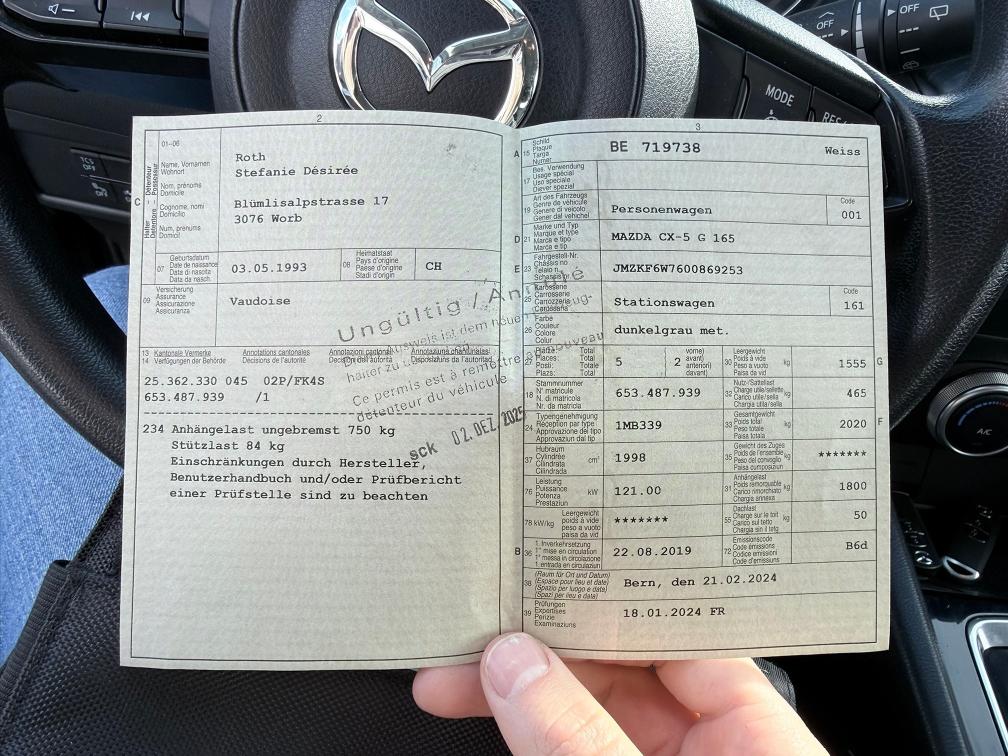 2
01-06
Halter Détenteur
Detentore Possessur
Name, Vornamen
Wohnort
Nom, prénoms
Domicile
Cognome, nomi
Domicilio
Num, prenums
Domicil
C
Roth
Stefanie Désirée
Blümlisalpstrasse 17
3076 Worb
07
Geburtsdatum
Date de naissance
Data di nascita
Data da nasch.
03.05.1993
08
Heimatstaat
Pays d'origine
Paese d'origine
Stadi d'origin
CH
09
Versicherung
Assurance
Assicurazione
Assicuranza
Vaudoise
13 Kantonale Vermerke Annotations cantonales Annotazioni cantonali Annotaziuns chantunalas
14 Verfügungen der Behörde Décisions de l'autorité Decisioni dell'autorità Disposiziuns da l'autoritad
25.362.330 045 02P/FK4S
653.487.939 /1
234 Anhängelast ungebremst 750 kg
Stützlast 84 kg
Einschränkungen durch Hersteller,
Benutzerhandbuch und/oder Prüfbericht
einer Prüfstelle sind zu beachten
Ungültig / Annulé
Ausweis ist dem neuen
halter zu
Ce permis est à remettre au nouveau
détenteur du véhicule
sck 02. DEZ. 2025
3
A 15
Schild
Plaque
Targa
Numer
BE 719738 Weiss
17
Bes. Verwendung
Usage spécial
Uso speciale
Diever spezial
19
Art des Fahrzeugs
Genre de véhicule
Genere di veicolo
Gener dal vehichel
Personenwagen
Code
001
D 21
Marke und Typ
Marque et type
Marca e tipo
Marca e tip
MAZDA CX-5 G 165
E 23
Fahrgestell-Nr.
Châssis no
Telaio n.
Schassis nr.
JMZKF6W7600869253
25
Karosserie
Carrosserie
Carrozzeria
Carossaria
Stationswagen
Code
161
26
Farbe
Couleur
Colore
Colur
dunkelgrau met.
27
Plätze: Total
Places: Total
Posti: Totale
Plazs: Total
5
2
vorne)
avant)
anteriori)
davant)
30
Leergewicht
Poids à vide
Peso a vuoto
Paisa da vid
kg
1555
G
18
Stammnummer
N° matricule
N. di matricola
Nr. da matricla
653.487.939
32
Nutz-/Sattellast
Charge utile/sellette
Carico utile/sella
Chargia utila/sella
kg
465
24
Typengenehmigung
Réception par type
Approvazione del tipo
Approvaziun dal tip
1MB339
33
Gesamtgewicht
Poids total
Peso totale
Paisa totala
kg
2020
F
37
Hubraum
Cylindrée
Cilindrata
Cilindrada
cm³
1998
35
Gewicht des Zuges
Poids de l'ensemble
Peso del convoglio
Paisa cumposiziun
kg
*******
76
Leistung
Puissance
Potenza
Prestaziun
kW
121.00
31
Anhängelast
Poids remorquable
Carico rimorchiato
Chargia annexa
kg
1800
78 kW/kg
Leergewicht
poids à vide
peso a vuoto
paisa da vid
*******
55
Dachlast
Charge sur le toit
Carico sul tetto
Chargia sin il tetg
kg
50
B 36
1. Inverkehrsetzung
1re mise en circulation
1a messa in circolazione
1. entrada en circulaziun
22.08.2019
72
Emissionscode
Code émissions
Codice emissioni
Code d'emissiuns
B6d
38
(Raum für Ort und Datum)
(Espace pour lieu et date)
(Spazio per luogo e data)
(Spazi per lieu e data)
Bern, den 21.02.2024
39
Prüfungen
Expertises
Perizie
Examinaziuns
18.01.2024 FR
MODE
OFF
OFF
A/C
TCS
OFF